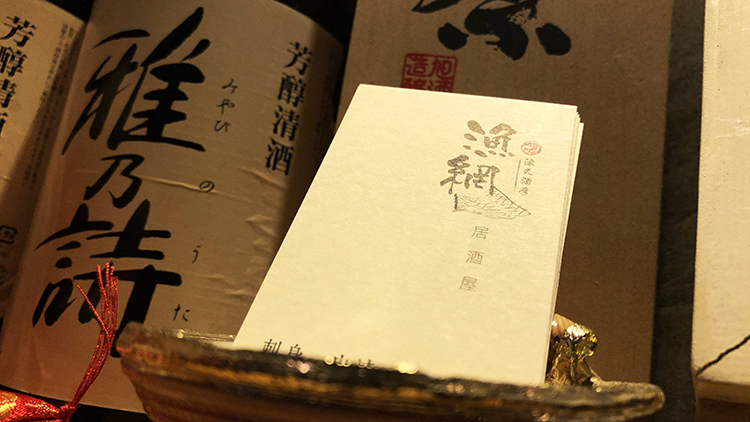 芳醇清酒
雅乃詩
みやびのうた
芳醇清酒
漁網
居酒屋
刺身